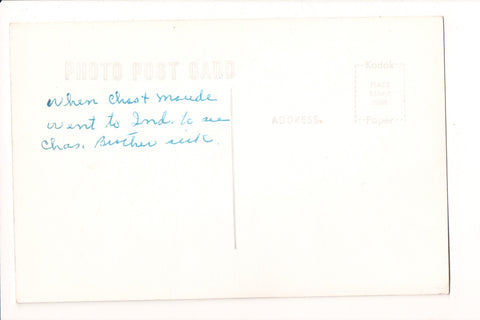 PHOTO POST CARD
When Chas + Maude
went to Ind. to see
Chas. Brother sick.
ADDRESS.
Kodak
PLACE
STAMP
HERE
Paper